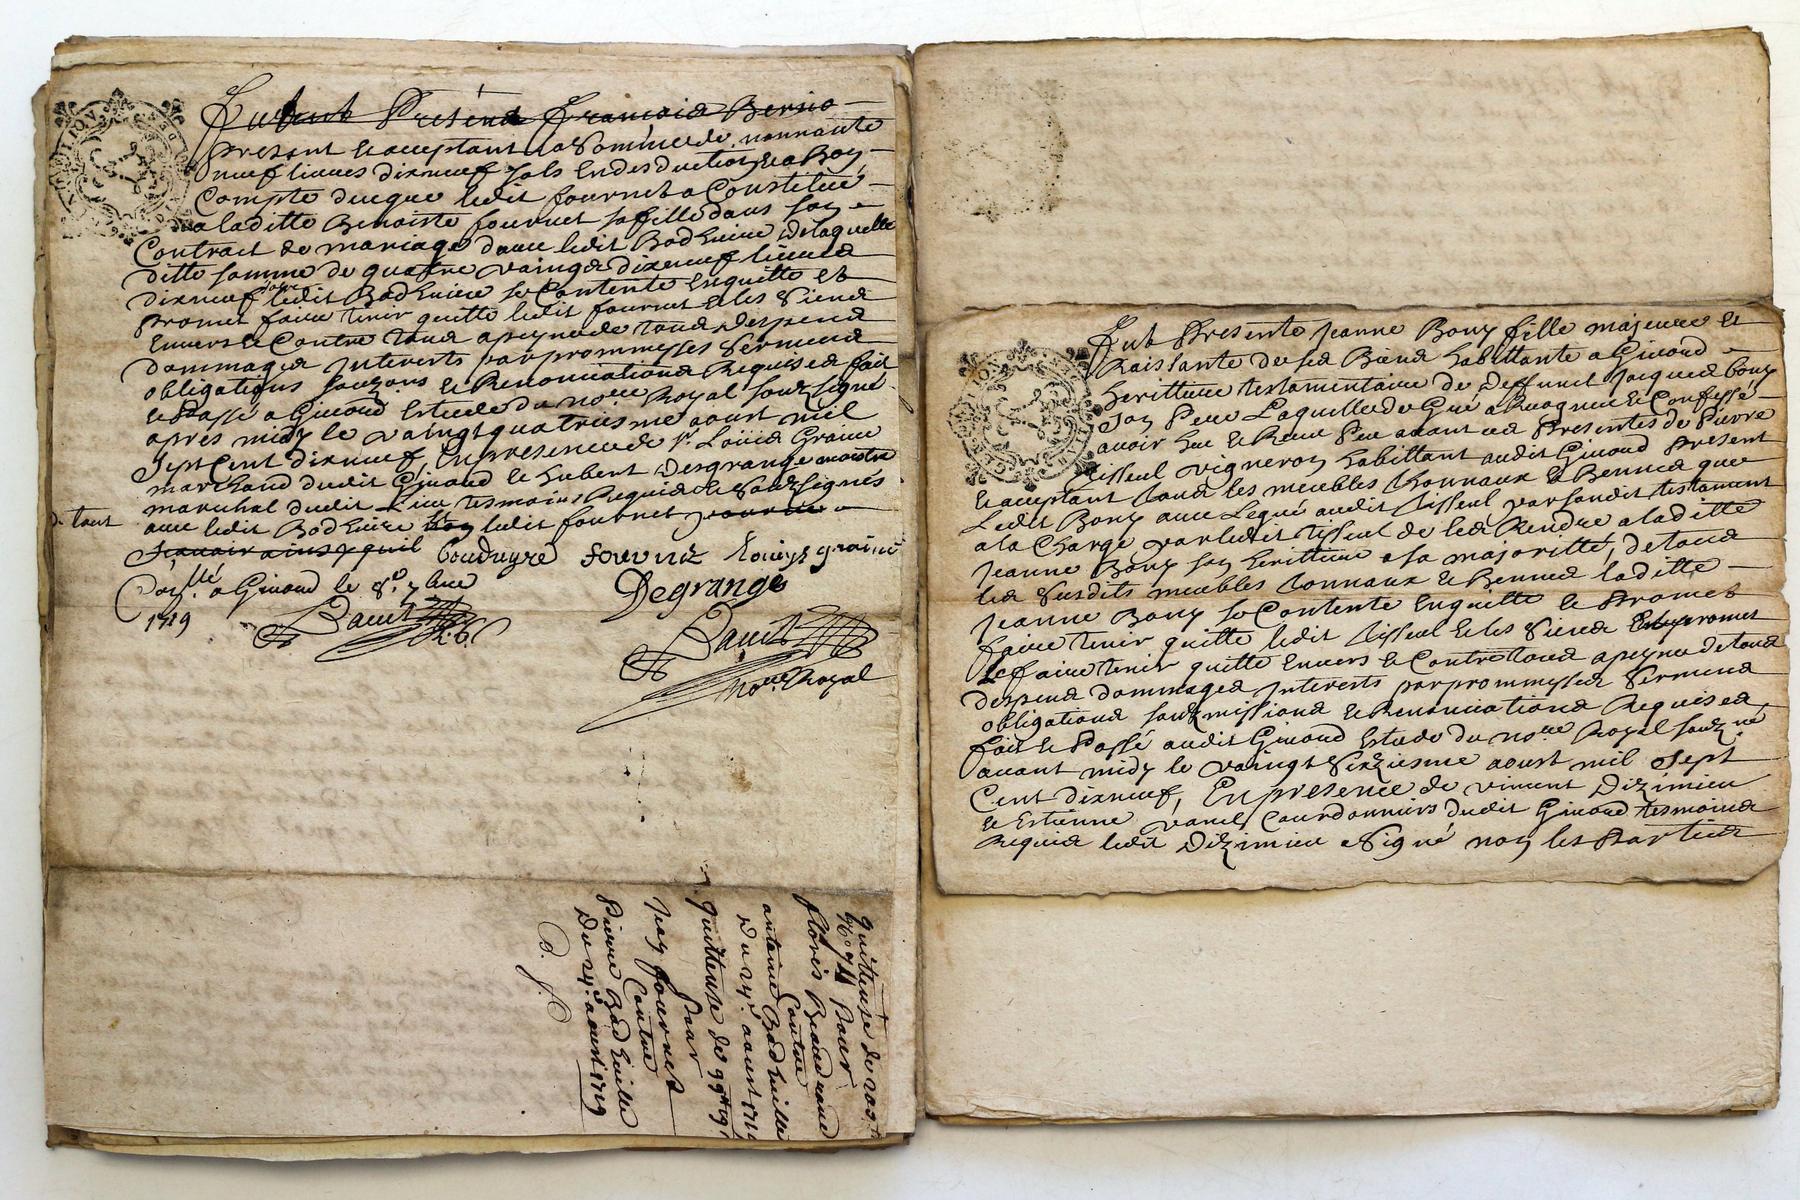 Fut Présent François
present et acceptant la Somme de nonnante
neuf livres dixneuf sols en desduction et a Bon
Compte du que ledit fournet a Constitué
a laditte Benoiste fournet sa fille dans son
Contract de mariage avec ledit de laquelle
ditte somme de quatre vaingts dixneuf livres
dixneuf sols ledit se Contente Enquitte et
promet faire tenir quitte ledit fournet et les Siens
Envers et Contre tous a peyne de tous despens
dommages Interests par prommesses Serment
obligations et Renonciations Requises fait
et Passé a Givord Estude du nore Royal soubsigné
apres midy le vaingtquatriesme aoust mil
Sept Cent dixneuf, En presence de Sr Loüis Graine
marchand dudit Givord et hubert Desgrange maistre
mareschal dudit Lieu tesmoins Requis et Soubsignés
avec ledit ledit fournet
de tout
fournet Loüys graine
a Givord le 8e 7bre
Degrange
1719
nore Royal
quittance de
Pour
Contre
antoine
Du 24e aoust
quittance de 99tt 19s
Pour
Jean fournet
Contre
Pierre
Du 24e aoust 1719
Fut Presente Jeanne Bony fille majeure et
Jouissante de ses Biens habittante a Givord
herittiere testamentaire de deffunct Jacques bony
son Pere Laquelle de Gré a Recogneu et Confessé
avoir heu et Receu Peu avant ces Presentes de Pierre
Tisseul vigneron habittant audit Givord Present
et acceptant tous les meubles tonnaux et Bennes que
Ledit Bony avoit Legué audit Tisseul par sondit testament
a la Charge par ledit Tisseul de les Rendre a laditte
Jeanne Bony son herittiere a sa majoritté, de tous
les Susdits meubles tonnaux et Bennes laditte
Jeanne Bony se Contente Enquitte et Promet
faire tenir quitte ledit Tisseul et les Siens
Le faire tenir quitte Envers et Contre tous a peyne de tous
despens dommages Interests par prommesses Serment
obligations soubsmissions et Renonciations Requises
fait et Passé audit Givord Estude du nore Royal soubz.né
avant midy le vaingt Sixiesme aoust mil Sept
Cent dixneuf, En presence de vincent Dizimieu
et Estienne Courdonniers dudit Givord tesmoins
Requis ledit Dizimieu a Signé non les Parties